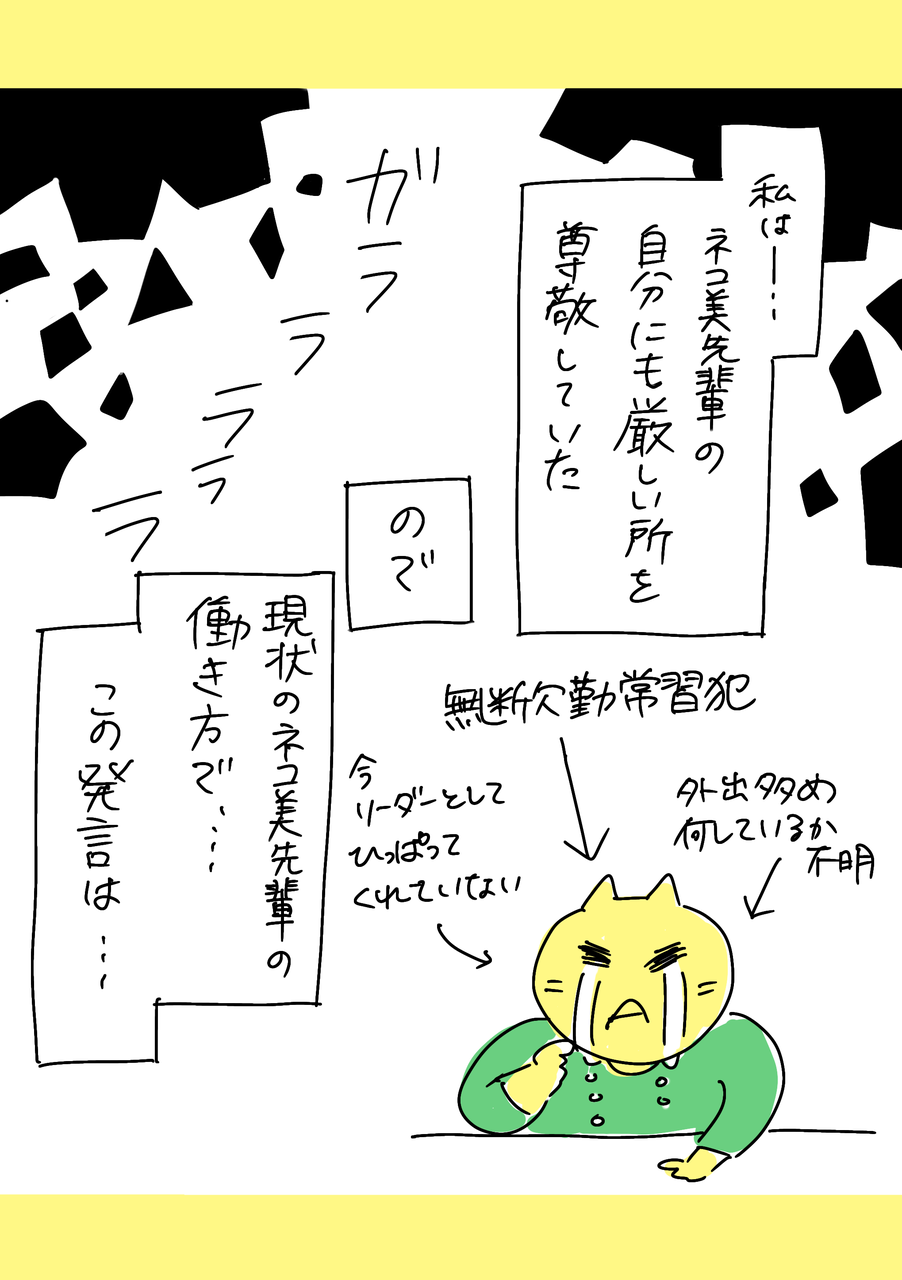 私は―…
ネコ美先輩の
自分にも厳しい所を
尊敬していた
ガララララ
ので
現状のネコ美先輩の
働き方で……
この発言は……
無断欠勤常習犯
外出多め
何しているか
不明
今
リーダーとして
ひっぱって
くれていない